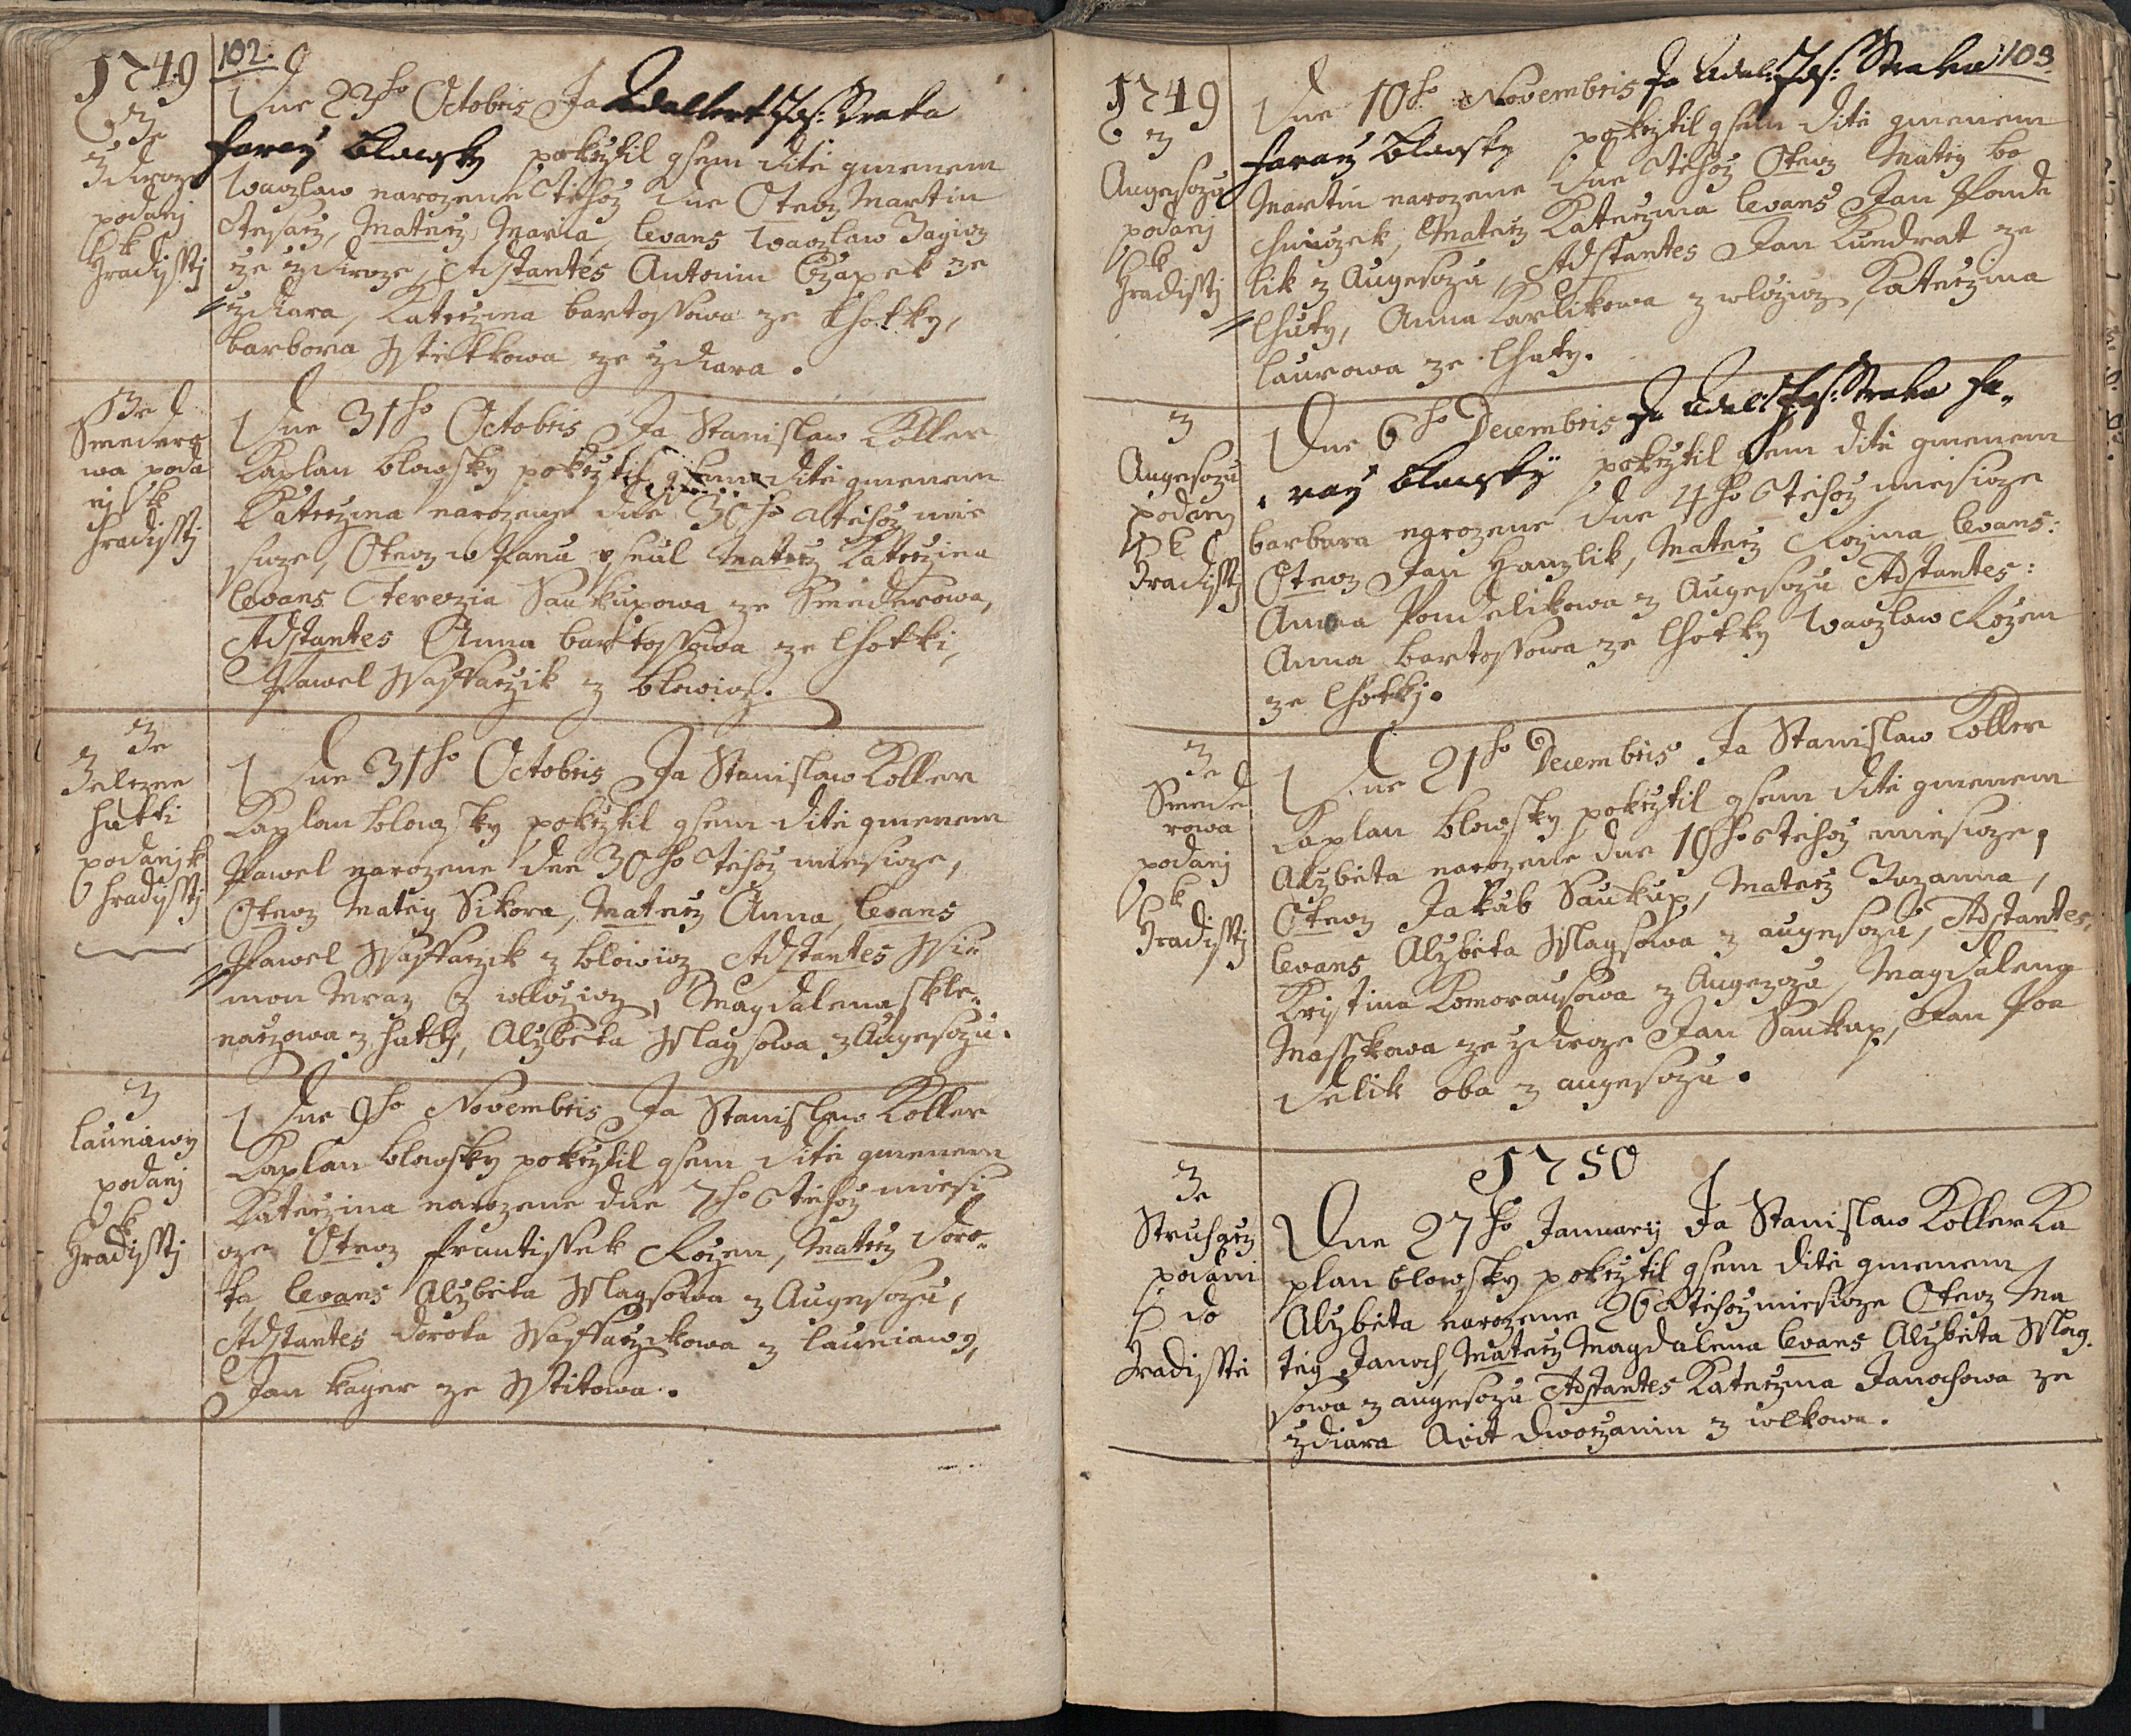 1749
102.
Ze
Zdiroze
podanj
k
Hradissti
Dne 23ho Octobris Ja Adalbert Jos: Straka
faraŕ Blowsky pokrztil gsem dite gmenem
Waczlaw narozene tehoz dne Otecz Martin
Tesarz, Materz Maria, levans Waczlaw
ze Zdiroze, Adstantes Antonin Czapek ze
Zdiara, Katerzina bartossowa ze Lhotky,
barbora ze Zdiara.
Ze
Smedero
wa poda
nj k
Hradissti
Dne 31ho Octobris Ja Stanislaw Koller
Kaplan blowsky pokrztil gsem dite gmenem
Katerzina narozene dne 30ho tehoz mie
sicze, Otecz w Panu usnul Materz Katerzina
levans Terezia Saukupowa ze Smederowa,
Adstantes Anna bartossowa ze Lhotki,
Pawel Wassarzik z blowicz.
Ze
Zelezne
hutti
podanj k
hradissti
Dne 31ho Octobris Ja Stanislaw Koller
Kaplan blowsky pokrztil gsem dite gmenem
Pawel narozene dne 30ho tehoz miesicze,
Otecz Matieg Sikora, Materz Anna, levans
Pawel Wassarzik z blowicz Adstantes Ssi
mon Mraz z wlczicz, Magdalena skle-
narzowa z hutti, Alzbieta Sslagsowa z Augesozu.
z
Launiowy
podanj
k
Hradissti
Dne 9ho Novembris Ja Stanislaw Koller
Kaplan blowsky pokrztil gsem dite gmenem
Katerzina narozene dne 7ho tehoz miesi
cze Otecz frantissek Rozen, Materz doro-
ta, levans Alzbieta Sslagsowa z Augesozu,
Adstantes dorota Wassarzikowa z launiowy,
Jan kager ze Sstitowa.
1749
103.
z
Augesozu
podanj
k
Hradissti
Dne 10ho Novembris Ja Adal: Jos: Straka
faraŕ Blowsky pokrztil gsem dite gmenem
Martin narozene dne tehoz Otecz Matieg bo
Materz Katerzina levans Jan Ponde
lik z Augesozu, Adstantes Jan Kundrat ze
Lhuty, Anna Karlikowa z wlczicz, Katerzina
laurowa ze Lhuty.
z
Augesozu
podanj
k
Hradissti
Dne 6ho Decembris Ja Adal: Jos: Straka fa-
raŕ Blowsky pokrztil gsem dite gmenem
barbara narozene dne 4ho tehoz miesicze
Otecz Jan Hanzlik, Materz Rozina levans:
Anna Pondelikowa z Augesozu Adstantes:
Anna bartossowa ze Lhotky Waczlaw Rozen
ze Lhotkj.
Ze
Smede
rowa
podanj
k
Hradissti
Dne 21ho Decembris Ja Stanislaw Koller
Kaplan blowsky pokrztil gsem dite gmenem
Alzbieta narozene dne 19ho tehoz miesicze,
Otecz Jakub Saukup, Materz Zuzanna,
levans Alzbieta Sslagsowa z augesozu, Adstantes,
Kristina Komorausowa z Augezozu, Magdalena
Masskowa ze Zdiroze Jan Saukup, Jan Pon
delik oba z augesozu.
1750
Ze
Struharz
podani
do
Hradissti
Dne 27ho Januarij Ja Stanislaw Koller Ka
plan blowsky pokrztil gsem dite gmenem
Alzbieta narozene 26 tehoz miesicze Otecz Ma
tieg Janoch, Materz Magdalena levans Alzbieta Sslag-
sowa z augesozu Adstantes Katerzina Janochowa ze
Zdiara Wit dworzanin z wlkowa.